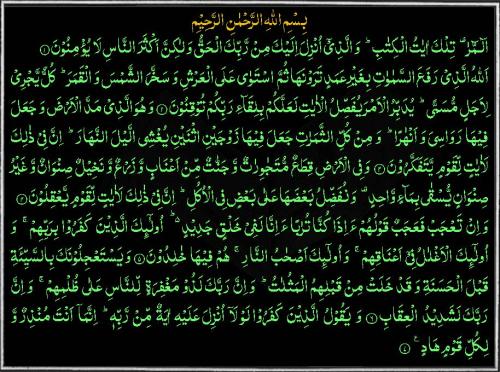 بِسْمِ اللهِ الرَّحْمٰنِ الرَّحِيْمِ
الٓمّٓرٰ ۚ تِلْكَ اٰيٰتُ الْكِتٰبِ ؕ وَ الَّذِيْۤ اُنْزِلَ اِلَيْكَ مِنْ رَّبِّكَ الْحَقُّ وَلٰكِنَّ اَكْثَرَ النَّاسِ لَا يُؤْمِنُوْنَ ۝۱
اَللهُ الَّذِيْ رَفَعَ السَّمٰوٰتِ بِغَيْرِ عَمَدٍ تَرَوْنَهَا ثُمَّ اسْتَوٰى عَلَى الْعَرْشِ وَ سَخَّرَ الشَّمْسَ وَ الْقَمَرَ ؕ كُلٌّ يَّجْرِيْ
لِاَجَلٍ مُّسَمًّى ؕ يُدَبِّرُ الْاَمْرَ يُفَصِّلُ الْاٰيٰتِ لَعَلَّكُمْ بِلِقَآءِ رَبِّكُمْ تُوْقِنُوْنَ ۝۲ وَ هُوَ الَّذِيْ مَدَّ الْاَرْضَ وَ جَعَلَ
فِيْهَا رَوَاسِيَ وَ اَنْهٰرًا ؕ وَ مِنْ كُلِّ الثَّمَرٰتِ جَعَلَ فِيْهَا زَوْجَيْنِ اثْنَيْنِ يُغْشِي الَّيْلَ النَّهَارَ ؕ اِنَّ فِيْ ذٰلِكَ
لَاٰيٰتٍ لِّقَوْمٍ يَّتَفَكَّرُوْنَ ۝۳ وَ فِي الْاَرْضِ قِطَعٌ مُّتَجٰوِرٰتٌ وَّ جَنّٰتٌ مِّنْ اَعْنَابٍ وَّ زَرْعٌ وَّ نَخِيْلٌ صِنْوَانٌ وَّ غَيْرُ
صِنْوَانٍ يُّسْقٰى بِمَآءٍ وَّاحِدٍ ۟ وَ نُفَضِّلُ بَعْضَهَا عَلٰى بَعْضٍ فِي الْاُكُلِ ؕ اِنَّ فِيْ ذٰلِكَ لَاٰيٰتٍ لِّقَوْمٍ يَّعْقِلُوْنَ ۝۴
وَ اِنْ تَعْجَبْ فَعَجَبٌ قَوْلُهُمْ ءَاِذَا كُنَّا تُرٰبًا ءَاِنَّا لَفِيْ خَلْقٍ جَدِيْدٍ ؕ۬ اُولٰٓئِكَ الَّذِيْنَ كَفَرُوْا بِرَبِّهِمْ ۚ وَ
اُولٰٓئِكَ الْاَغْلٰلُ فِيْۤ اَعْنَاقِهِمْ ۚ وَ اُولٰٓئِكَ اَصْحٰبُ النَّارِ ۚ هُمْ فِيْهَا خٰلِدُوْنَ ۝۵ وَ يَسْتَعْجِلُوْنَكَ بِالسَّيِّئَةِ
قَبْلَ الْحَسَنَةِ وَ قَدْ خَلَتْ مِنْ قَبْلِهِمُ الْمَثُلٰتُ ؕ وَ اِنَّ رَبَّكَ لَذُوْ مَغْفِرَةٍ لِّلنَّاسِ عَلٰى ظُلْمِهِمْ ۚ وَ اِنَّ
رَبَّكَ لَشَدِيْدُ الْعِقَابِ ۝۶ وَ يَقُوْلُ الَّذِيْنَ كَفَرُوْا لَوْ لَاۤ اُنْزِلَ عَلَيْهِ اٰيَةٌ مِّنْ رَّبِّهٖ ؕ اِنَّمَاۤ اَنْتَ مُنْذِرٌ وَّ
لِكُلِّ قَوْمٍ هَادٍ ۝